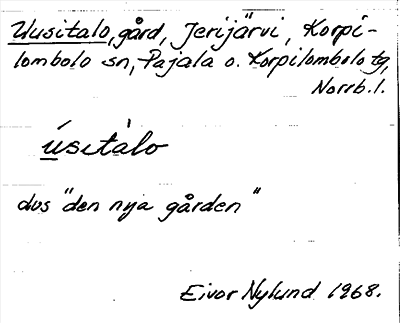 Uusitalo, gård, Jerijärvi, Korpi-
lombolo sn, Pajala o. Korpilombolo tg,
Norrb. l.
úsitàlo
dvs "den nya gården"
Eivor Nylund 1968.